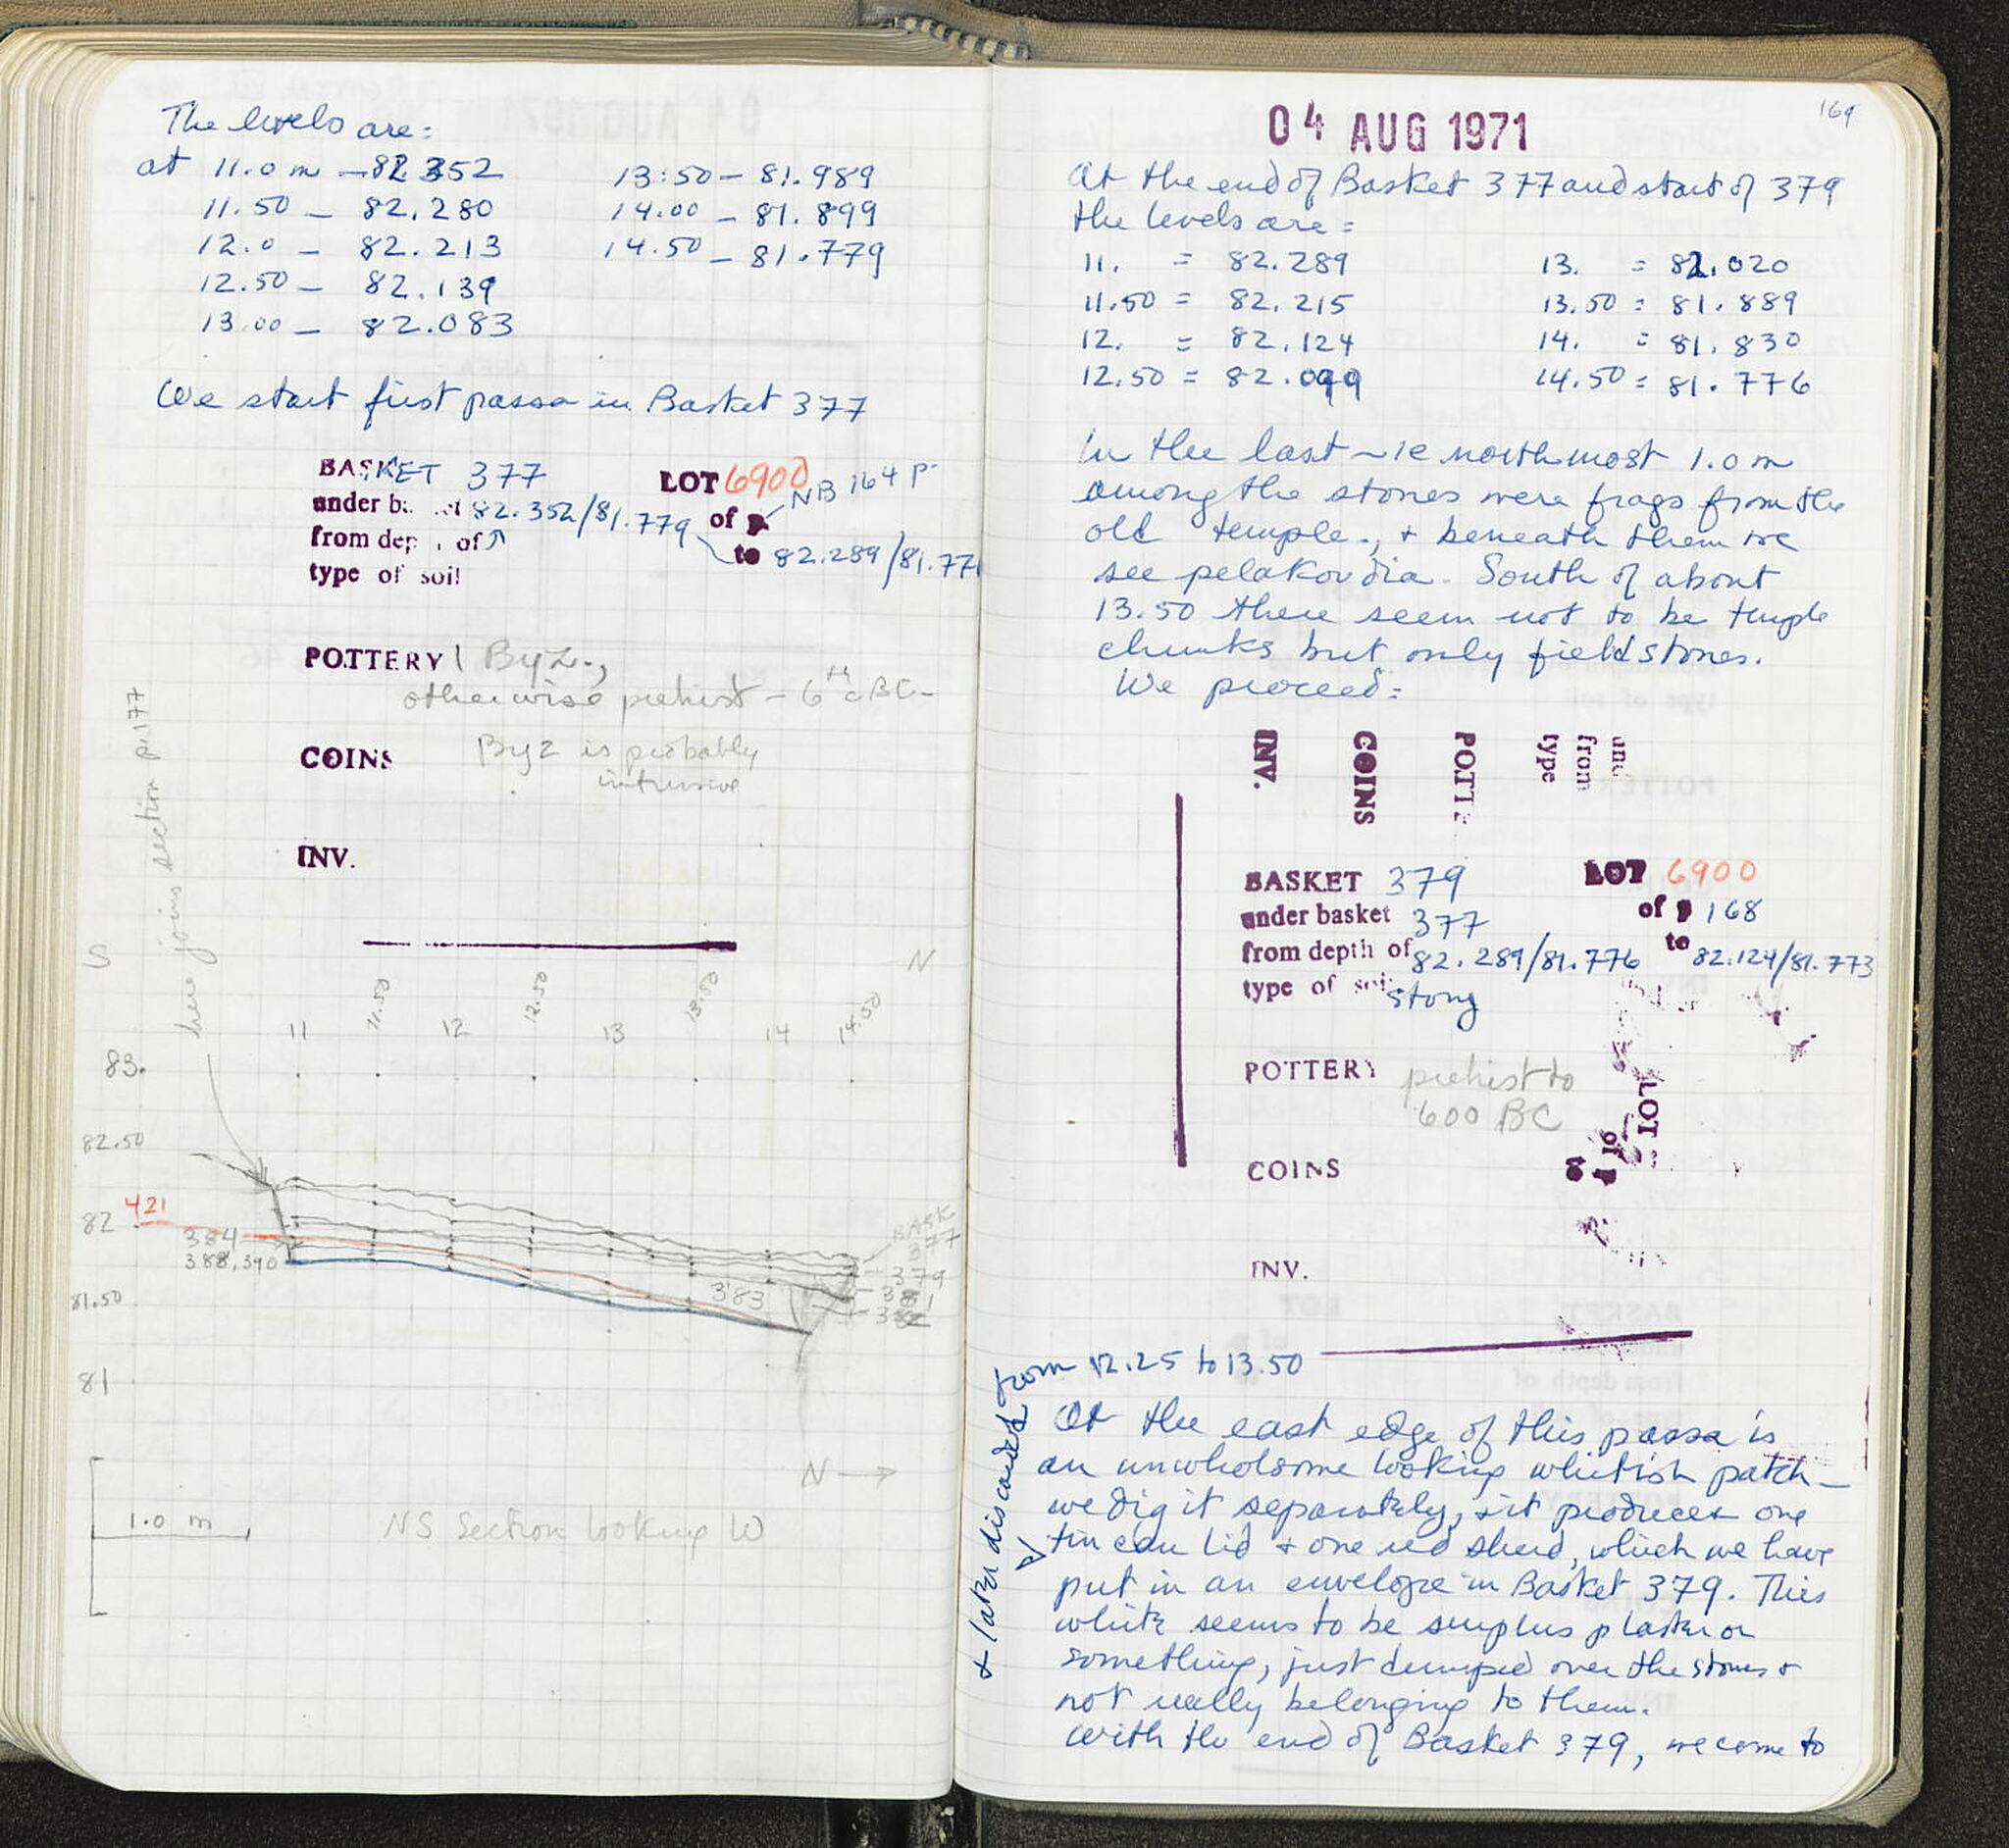 The levels are:
at 11.0 m — 82.352
11.50 — 82.280
12.0 — 82.213
12.50 — 82.139
13.00 — 82.083
13:50 — 81.989
14.00 — 81.899
14.50 — 81.779
We start first passa in Basket 377
BASKET 377 LOT 6900
under ba et 82.352/81.779 of p NB 164 P.
from dep of to 82.289/81.77
type of soil
POTTERY 1 Byz.,
otherwise prehist – 6th c BC –
COINS Byz is probably
intrusive
INV.
here joins section p.177
S N
11 11.50 12 12.50 13 13.50 14 14.50
83.
82.50
421
82
384
388, 390
81.50
81
BASK
377
379
381
382
383
N →
1.0 m NS Section looking W
169
04 AUG 1971
At the end of Basket 377 and start of 379
the levels are =
11. = 82.289 13. = 82.020
11.50 = 82.215 13.50 = 81.889
12. = 82.124 14. = 81.830
12.50 = 82.099 14.50 = 81.776
In the last – ie northmost 1.0 m
among the stones were frags from the
old temple., + beneath them we
see pelakoudia. South of about
13.50 there seem not to be temple
chunks but only fieldstones.
We proceed:
INV.
COINS
POTTE
type
from
und
BASKET 379 LOT 6900
under basket 377 of p 168
from depth of 82.289/81.776 to 82.124/81.773
type of soil stony
POTTERY prehist to
600 BC
LOT
of p
to
COINS
INV.
from 12.25 to 13.50
At the east edge of this passa is
an unwholsome looking whitish patch –
we dig it separately, + it produces one
tin can lid + one red sherd, which we have
+ later discarded
put in an envelope in Basket 379. This
white seems to be surplus plaster or
something, just dumped over the stones +
not really belonging to them.
With the end of Basket 379, we come to